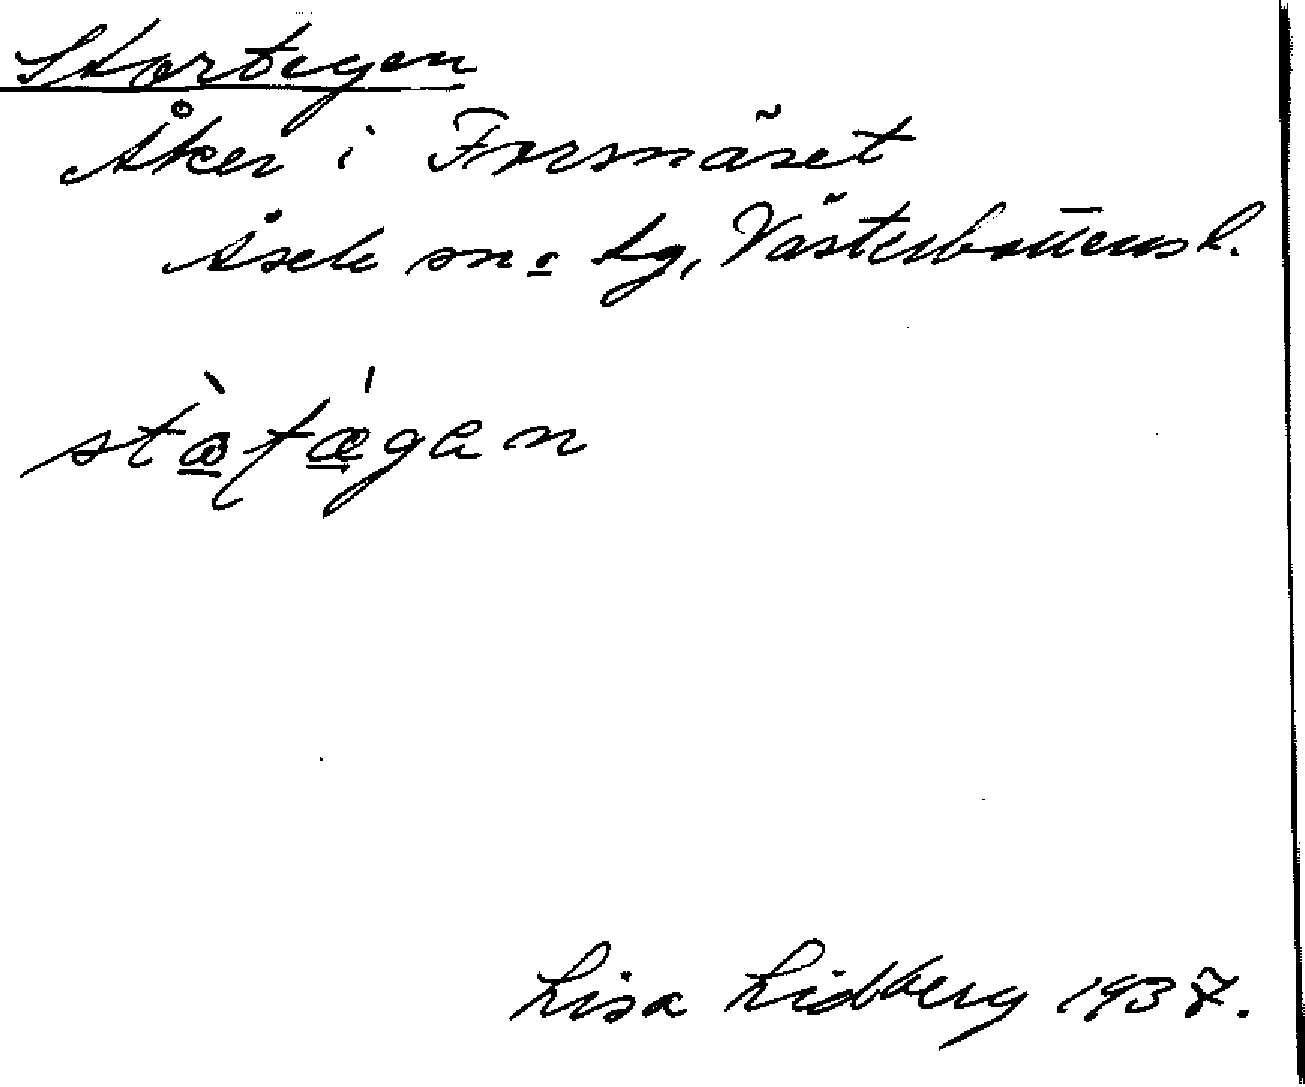 Stortegen
Åker i Forsnäset
Åsele sn o. lg, Västerbottens l.
Lisa Lidberg 1937.